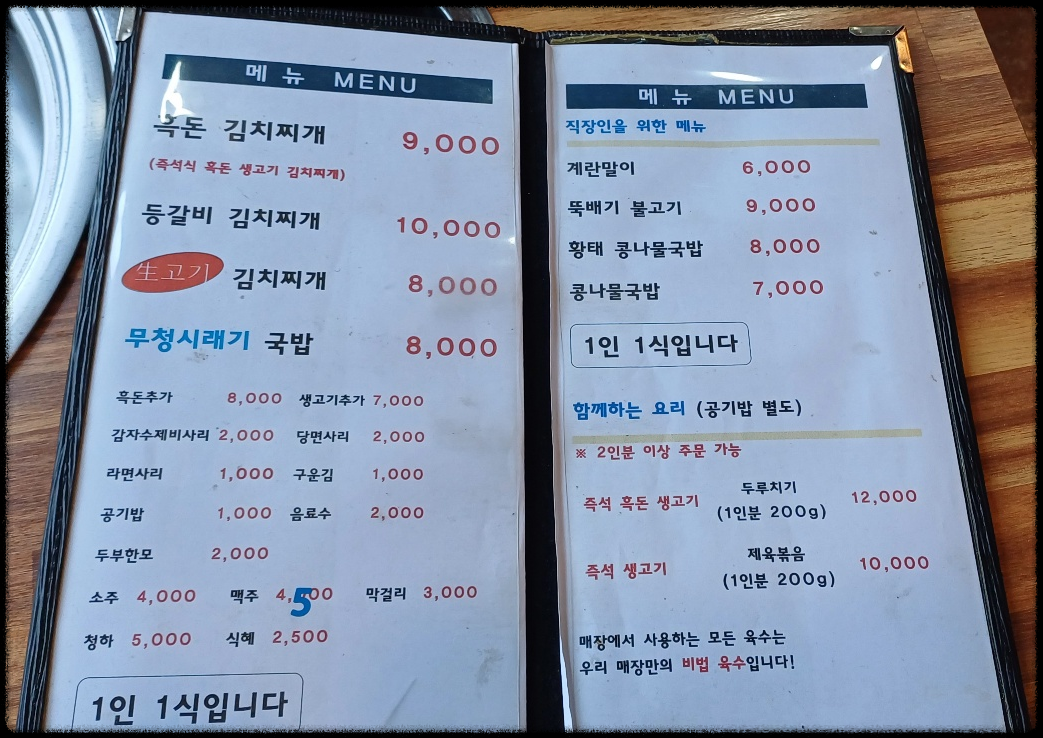 메뉴 MENU
흑돈 김치찌개 9,000
(즉석식 흑돈 생고기 김치찌개)
등갈비 김치찌개 10,000
生고기 김치찌개 8,000
무청시래기 국밥 8,000
흑돈추가 8,000 생고기추가 7,000
감자수제비사리 2,000 당면사리 2,000
라면사리 1,000 구운김 1,000
공기밥 1,000 음료수 2,000
두부한모 2,000
소주 4,000 맥주 4,500 막걸리 3,000
청하 5,000 식혜 2,500
1인 1식입니다
메뉴 MENU
직장인을 위한 메뉴
계란말이 6,000
뚝배기 불고기 9,000
황태 콩나물국밥 8,000
콩나물국밥 7,000
1인 1식입니다
함께하는 요리 (공기밥 별도)
※ 2인분 이상 주문 가능
즉석 흑돈 생고기 두루치기 12,000
(1인분 200g)
즉석 생고기 제육볶음 10,000
(1인분 200g)
매장에서 사용하는 모든 육수는
우리 매장만의 비법 육수입니다!